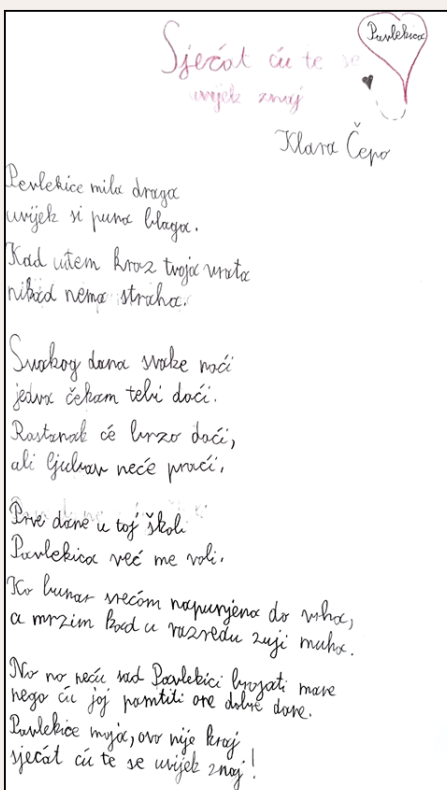 Sječat ću te se
uvijek znaj
Pavlekica
Klara Čepo
Pavlekice mila draga
uvijek si puna blaga.
Kad uđem kroz tvoja vrata
nikad nema straha.
Svakog dana svake noći
jedva čekam tebi doći.
Rastanak će brzo doći,
ali ljubav neće proći.
Prve dane u toj školi
Pavlekica već me voli.
Ko bunar srećom napunjena do vrha,
a mrzim kad u razredu zuji muha.
No no neću sad Pavlekici brojati mane
nego ću joj pamtiti one dobre dane.
Pavlekice moja, ovo nije kraj
sječat ću te se uvijek znaj!